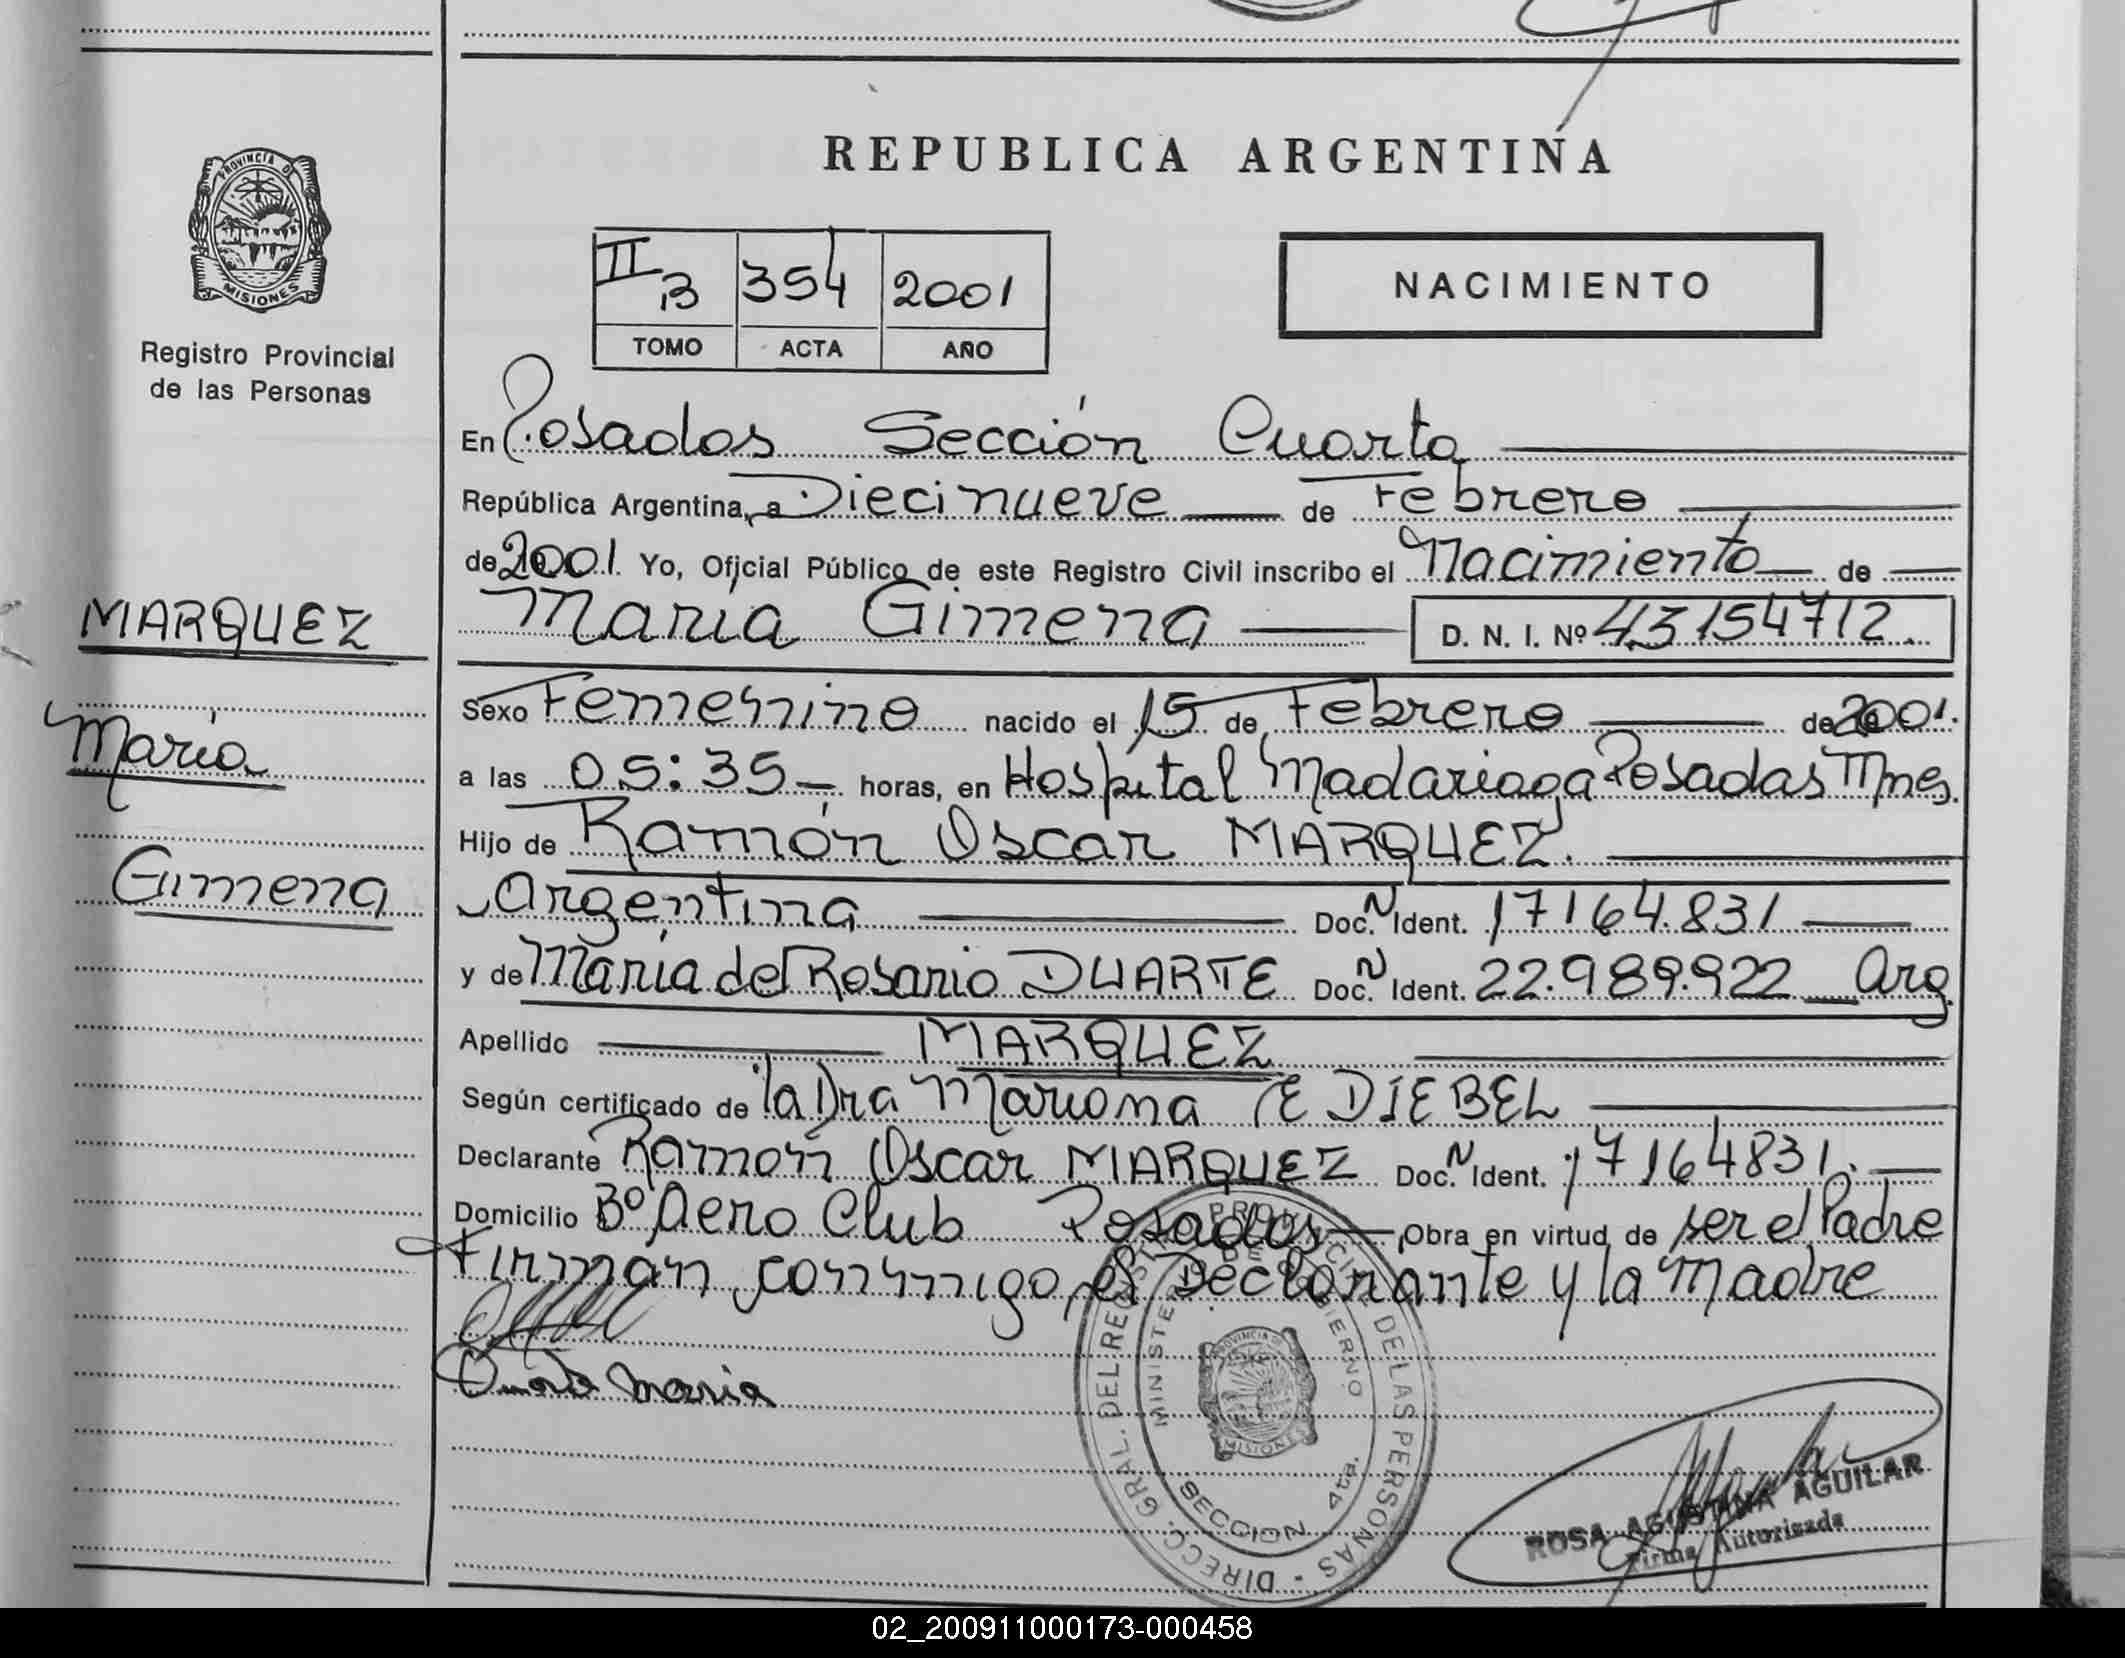 PROVINCIA DE
MISIONES
Registro Provincial
de las Personas
MARQUEZ
María
Gimena
REPUBLICA ARGENTINA
II B 354 2001
TOMO ACTA AÑO
NACIMIENTO
En Posadas Sección Cuarta
República Argentina, a Diecinueve de Febrero
de 2001. Yo, Oficial Público de este Registro Civil inscribo el Nacimiento de
María Gimena D. N. I. Nº 43154712.
Sexo Femenino nacido el 15 de Febrero de 2001.
a las 05:35 horas, en Hospital Madariaga Posadas Mnes.
Hijo de Ramón Oscar MARQUEZ.
Argentina Doc. N Ident. 17164.831
y de María del Rosario DUARTE Doc. N Ident. 22.989.922 Arg
Apellido MARQUEZ
Según certificado de la Dra Mariana E DIEBEL
Declarante Ramón Oscar MARQUEZ Doc. N Ident. 17164831.
Domicilio Bº Aero Club Posadas, Obra en virtud de ser el Padre
Firman conmigo, el Declarante y la Madre
Duarte Maria
DIRECC. GRAL. DEL REGISTRO PROVINCIAL DE LAS PERSONAS
MINISTERIO DE GOBIERNO
PROVINCIA DE
MISIONES
SECCION 4ta.
ROSA AGUSTINA AGUILAR
Firma Autorizada
02_200911000173-000458